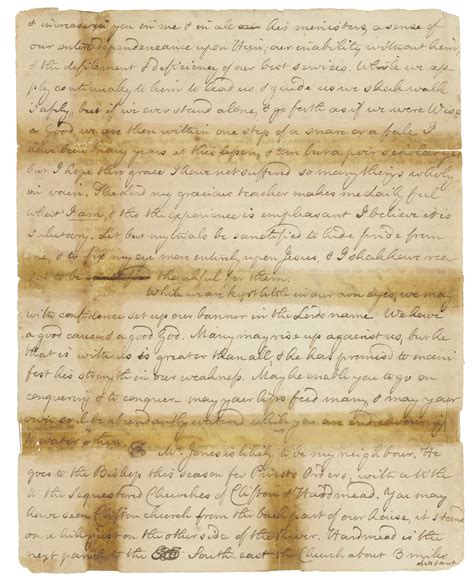 & increase in you in me & in all his ministers, a sense of
our entire dependeance upon Him, our inability without him
& the defilement & deficiency of our best services. While we ap-
ply continually to him to lead us & guide us we shall walk
safely, but if we ever stand alone, & go forth as if we were Wise
or Good we are then within one step of a snare or a fall. I
have been many years at this lesson, & am but a poor scholar yet
but I hope thro grace I have not suffered so many things wholly
in vain. The Lord my gracious teacher makes me daily feel
what I am & tho the experience is unpleasant I believe it is
salutary. Let but my trials be sanctified to hide pride from
me, & to fix my eye more entirely upon Jesus, & I shall have rea
to be thankful for them.
While we are kept little in our own eyes, we may
with confidence set up our banner in the Lords name. We have
a good cause & a good God. Many may rise up against us, but he
that is with us is greater than all, & he has promised to mani
fest his strength in our weakness. May he enable you to go on
conquering & to conquer may your lips feed many & may your
own soul be abundantly watered while you are endeavouring
to water others.
Mr. Jones is likely to be my neighbour. He
goes to the Bishop this season for Priests Orders, with a title
to the sequestered Churches of Clifton & Hardmead. You may
have seen Clifton church from the back part of our house, it stands
on a hill just on the other side of the River. Hardmead is the
next parish to the South east the Church about 3 miles
distant